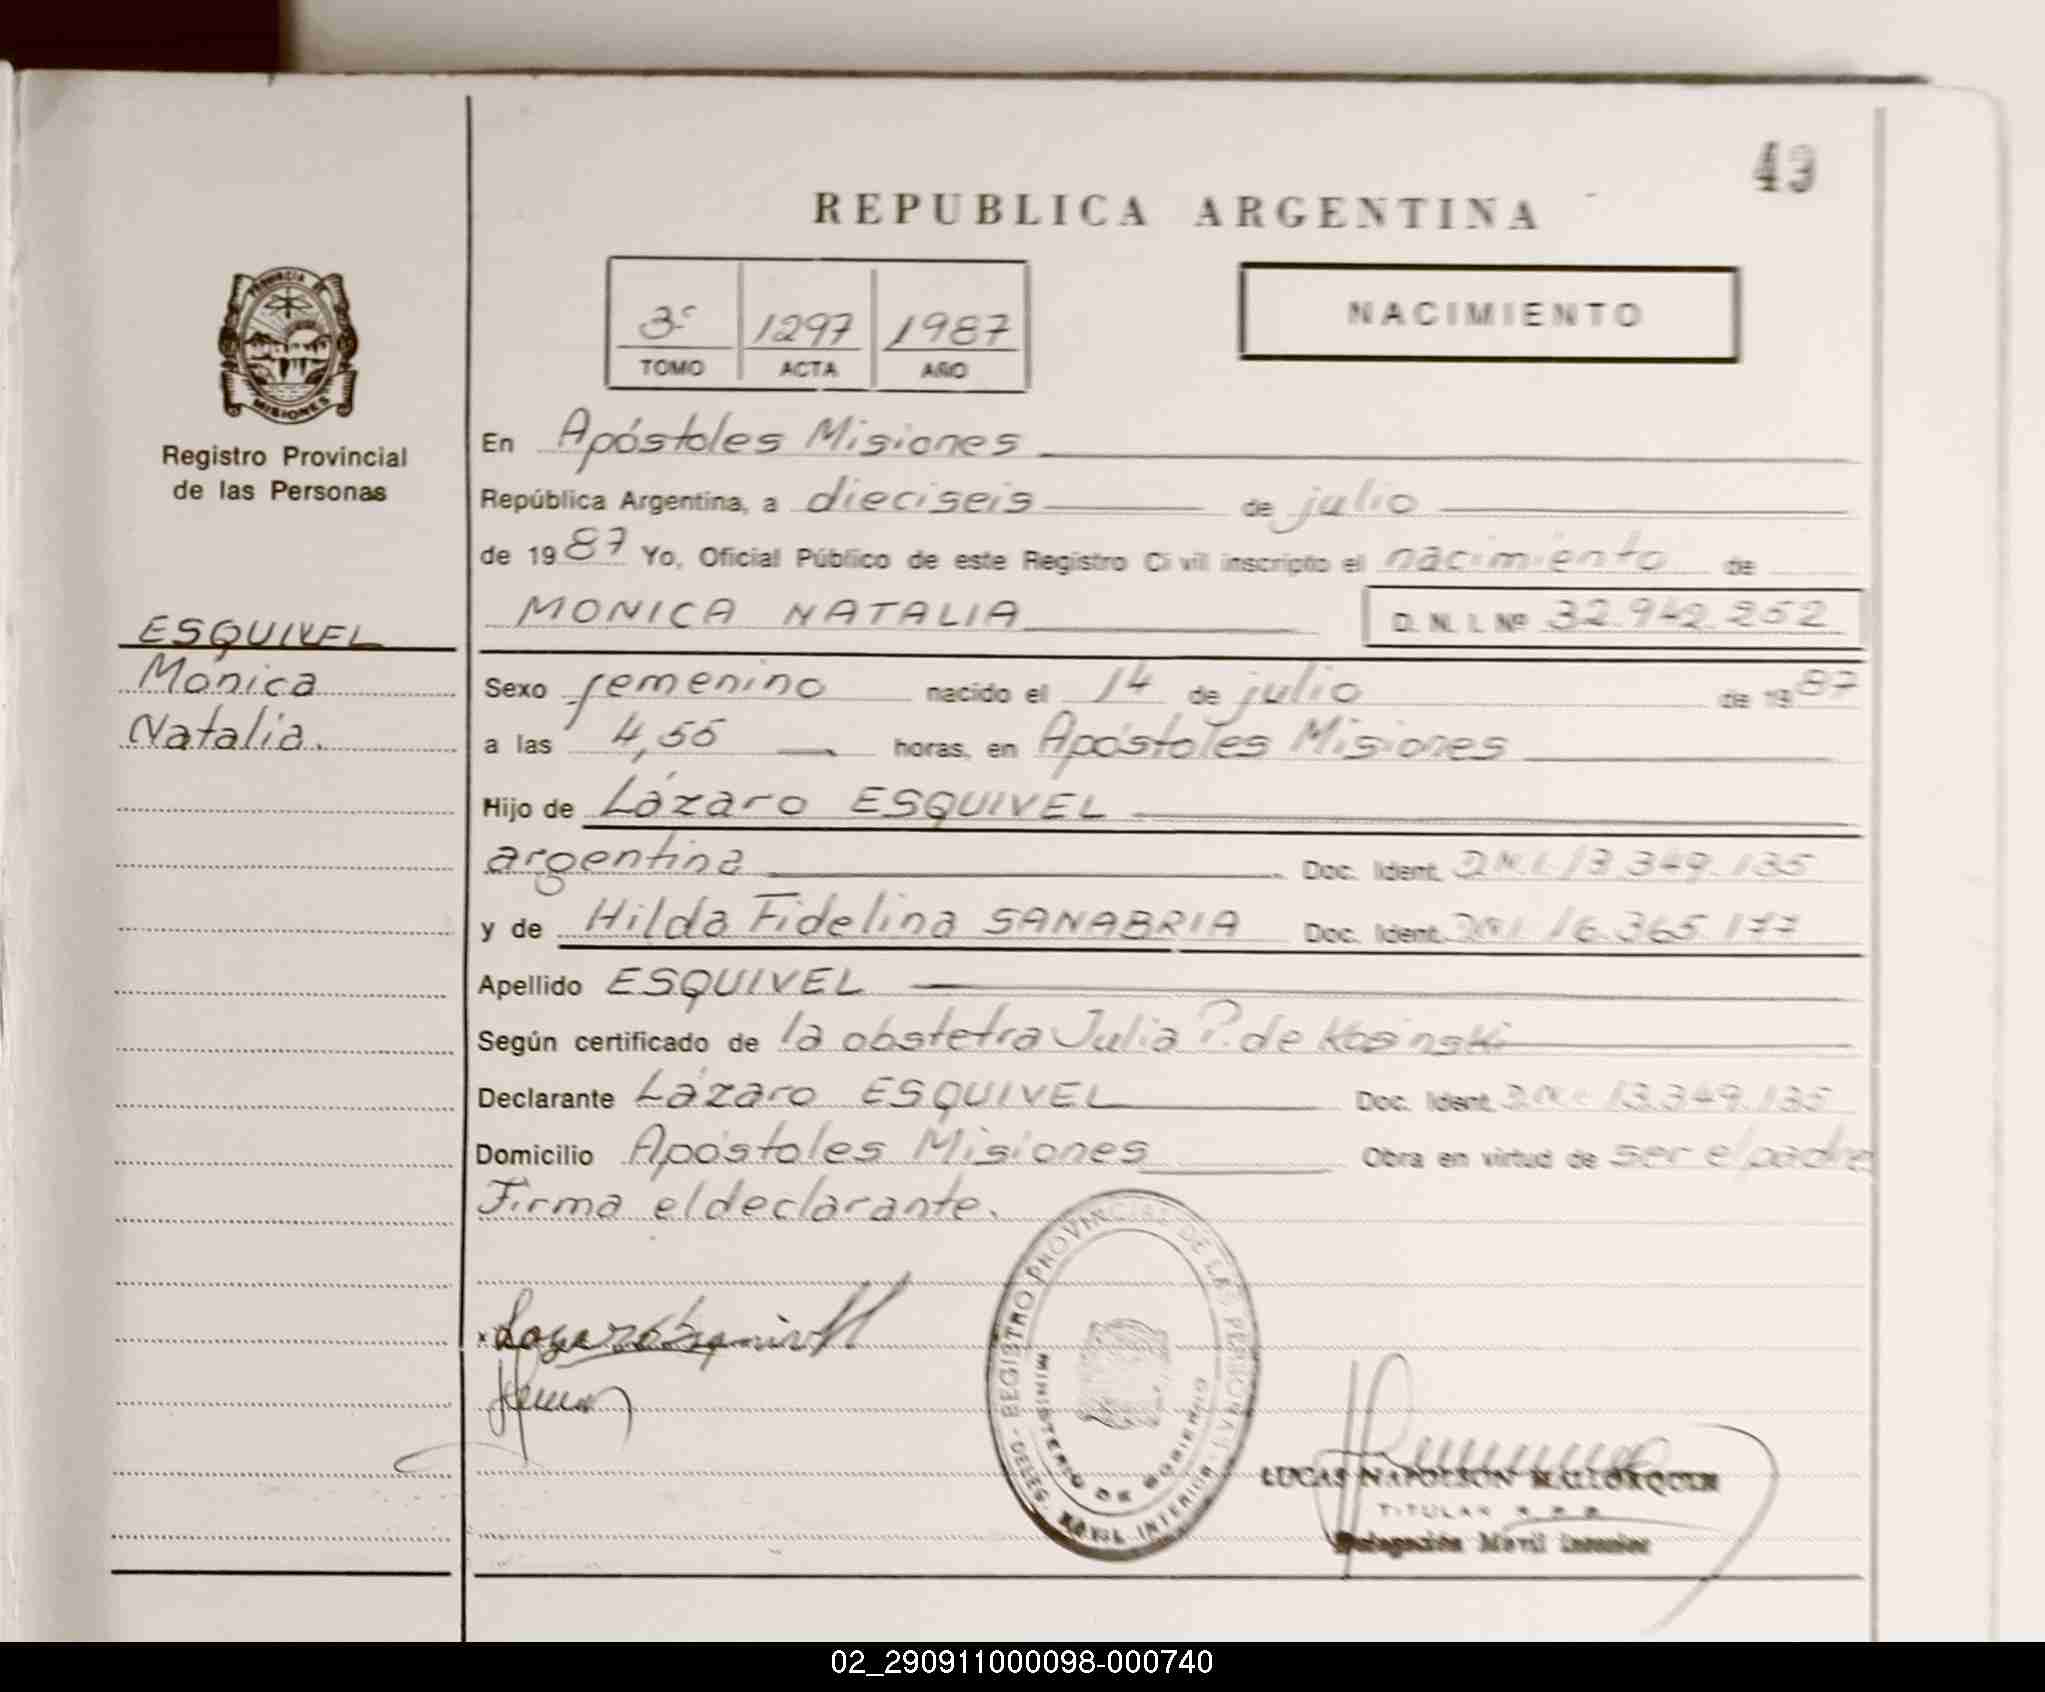 43
REPUBLICA ARGENTINA
3º 1297 1987
TOMO ACTA AÑO
NACIMIENTO
PROVINCIA DE
MISIONES
Registro Provincial
de las Personas
ESQUIVEL
Mónica
Natalia.
En Apóstoles Misiones
República Argentina, a dieciseis de julio
de 1987 Yo, Oficial Público de este Registro Civil inscripto el nacimiento de
MONICA NATALIA D. N. I. Nº 32.942.252
Sexo femenino nacido el 14 de julio de 1987
a las 4,55 horas, en Apóstoles Misiones
Hijo de Lázaro ESQUIVEL
argentina Doc. Ident. D.N.I. 13.349.135
y de Hilda Fidelina SANABRIA Doc. Ident. DNI. 16.365.177
Apellido ESQUIVEL
Según certificado de la obstetra Julia P. de Kosinski
Declarante Lázaro ESQUIVEL Doc. Ident. D.N.I. 13.349.135
Domicilio Apóstoles Misiones Obra en virtud de ser el padre
Firma el declarante.
REGISTRO PROVINCIAL DE LAS PERSONAS
MINISTERIO DE GOBIERNO
DELEG. MOVIL INTERIOR
LUCAS NAPOLEON MALLORQUIN
TITULAR R. P. P.
Delegación Movil Interior
02_290911000098-000740